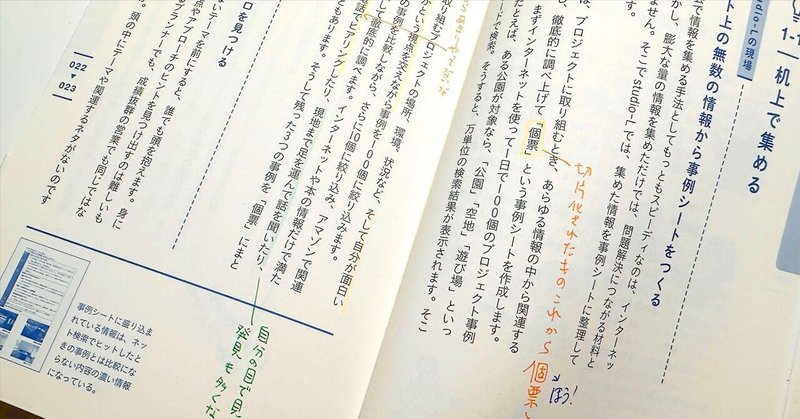 1-1
机上で集める
studio-Lの現場
ト上の無数の情報から事例シートをつくる
で情報を集める手法としてもっともスピーディなのは、インターネッ
かし、膨大な量の情報を集めただけでは、問題解決につながる材料と
ません。そこでstudio-Lでは、集めた情報を事例シートに整理して
は、プロジェクトに取り組むとき、あらゆる情報の中から関連する
、徹底的に調べ上げて「個票」という事例シートを作成します。
まずインターネットを使って1日で100個のプロジェクト事例
たとえば、ある公園が対象なら、「公園」「空地」「遊び場」といっ
ードで検索。そうすると、万単位の検索結果が表示されます。そこ
切片化されたものこれから個票と
ほう!
取り組むプロジェクトの場所、環境、状況など、そして自分が面白い
いう視点を交えながら事例を100個に絞り込みます。
の事例を比較しながら、さらに10個に絞り込み、アマゾンで関連
して徹底的に調べます。インターネットや本の情報だけで満た
話でヒアリングしたり、現地まで足を運んで話を聞いたり、
ともあります。そうして残った5つの事例を「個票」にまと
自分の目で見
発見も多くな
ロを見つける
いテーマを前にすると、誰でも頭を抱えます。身に
点やアプローチのヒントを見つけ出すのは難しいも
プランナーでも、成績抜群の営業でも同じではな
。頭の中にテーマや関連するネタがないのです
022
023
事例シートに盛り込ま
れている情報は、ネッ
ト検索でヒットしたと
きの事例とは比較にな
らない内容の濃い情報
になっている。